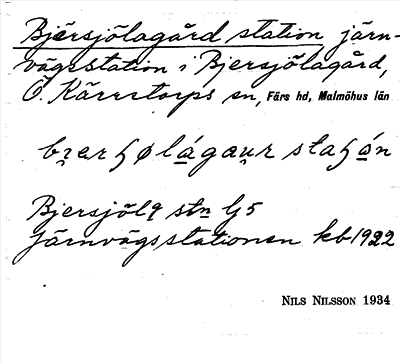 Bjärsjölagård station järn-
vägsstation i Bjersjölagård,
Ö. Kärrstorps sn, Färs hd, Malmöhus län
Bjersjöl9 stn
Järnvägsstationen kb 1922
NILS NILSSON 1934